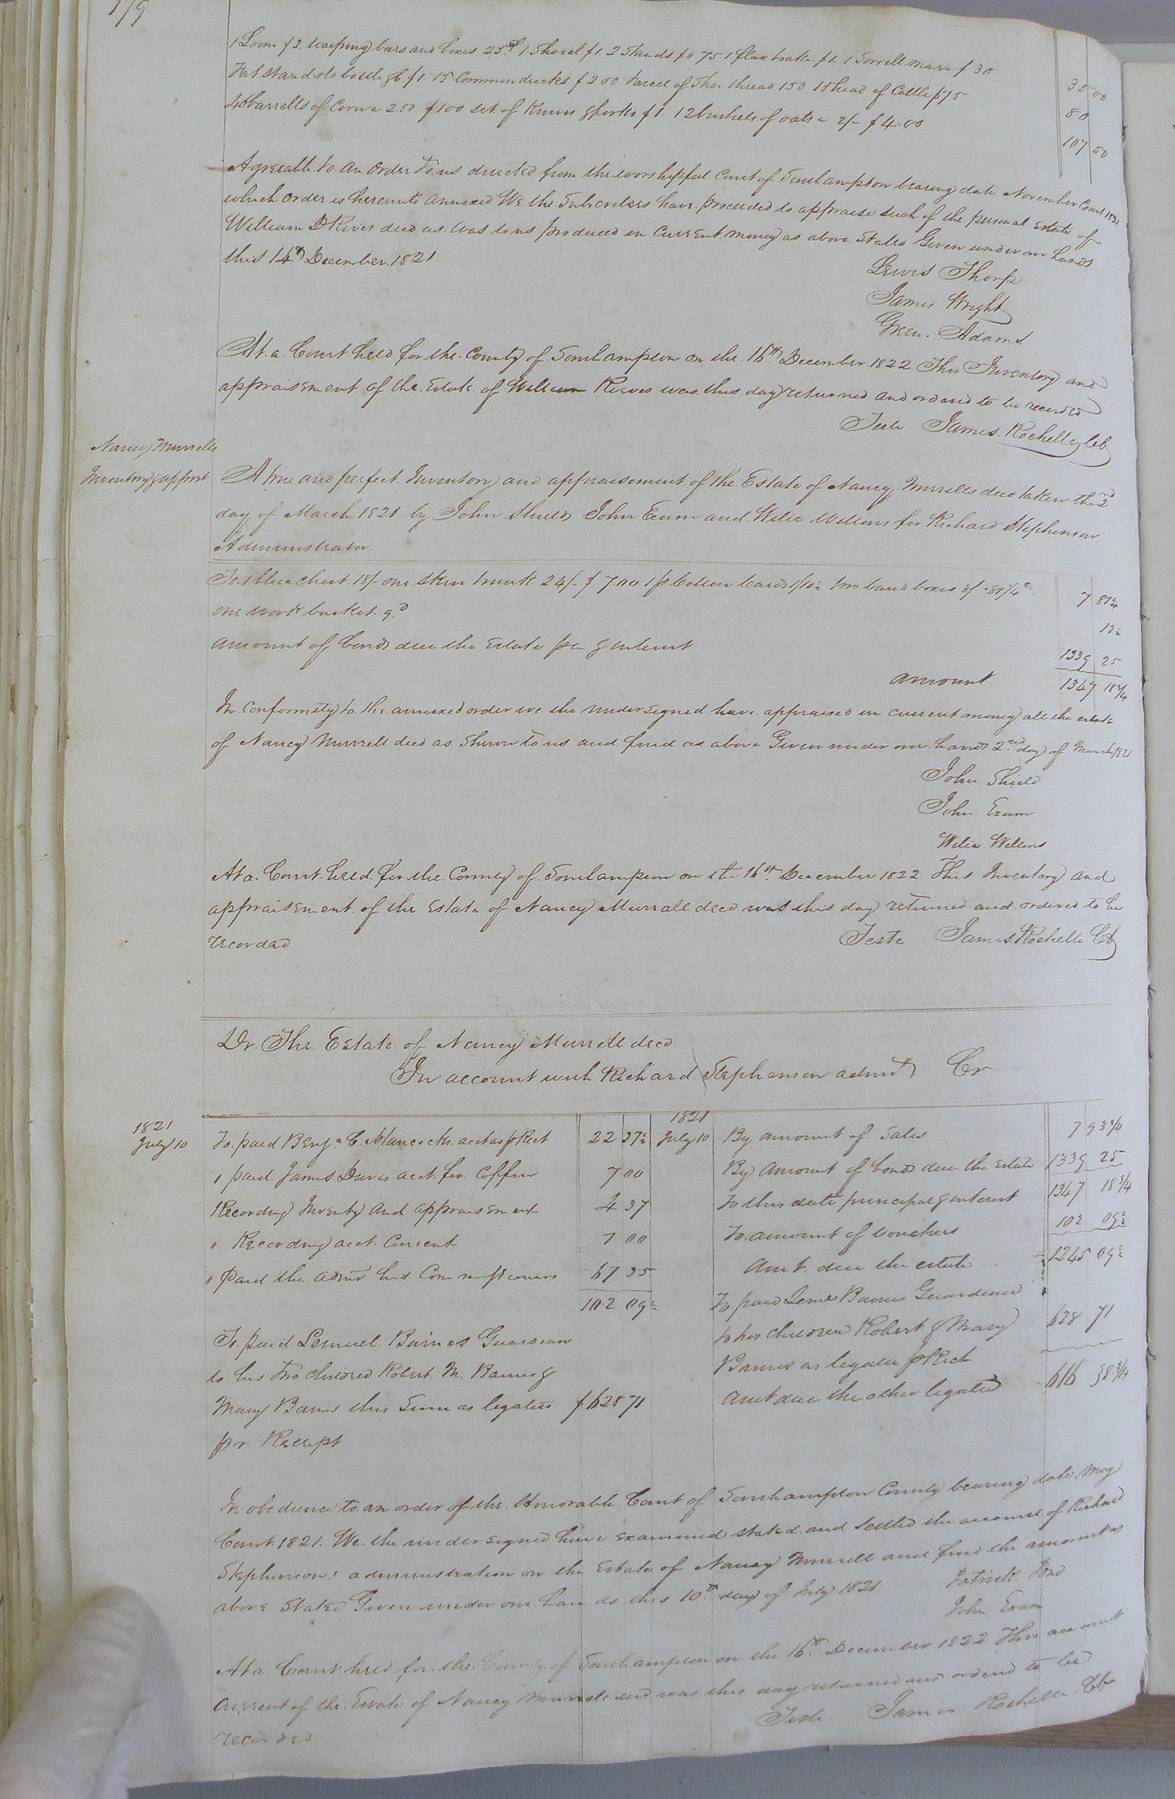 179
1 Loom $2 warping bars and boxes 25d 1 Shovel $1. 2 Stands 75 1 flax brake $1. 1 Sorrell mare $30
15 Common ducks $2 00 Parcel of Shoe thread 150 15 head of Cattle $75
35 00
40 barrells of Corn a 250 $100 set of Knives & forks $1 12 bushels of oats a 2/- $4.00
80
107 50
Agreeable to an order to us directed from the worshipfull Court of Southampton bearing date November Court 1821
which order is hereunto annexed We the Subscribers have proceeded to appraise such of the personal Estate of
William D Rives decd as was to us produced in Current money as above Stated Given under our hands
this 14th December 1821
Lewis Thorp
James Wright
Green. Adams
At a Court held for the County of Southampton on the 16th December 1822 This Inventory and
appraisement of the Estate of William Reeves was this day returned and ordered to be recorded
Teste James Rochelle Clk
Nancy Murrells
Inventory & appmt
A true and perfect Inventory and appraisement of the Estate of Nancy Murrells decd taken the 2nd
day of March 1821 by John Shield John Exum and Wilie Wellons for Richard Stephenson
Administrator
To 1 blue chest 18/- one Skin trunk 24/- $7.00 1 pr Cotton Cards 1/10½ two band boxes 3/ .81¼c
7 81¼
one work basket 9d
12½
amount of bonds due the Estate prin & interest
1339 25
amount
1347 18¾
In Conformity to the annexed order we the undersigned have appraised in current money all the estate
of Nancy Murrell decd as Shewn to us and find as above Given under our hands 2nd day of March 1821
John Shield
John Exum
Wilie Wellons
At a Court held for the County of Southampton on the 16th December 1822 This Inventory and
appraisement of the Estate of Nancy Murrall decd was this day returned and ordered to be
recorded
Teste James Rochelle Clk
Dr The Estate of Nancy Murrell decd
In account with Richard Stephenson admr Cr
1821
July 10 To paid Benja C. acct as pr Rect 22 37½
" paid James Davis acct for Coffin 7 00
Recording Inventy and appraisement 4 37
" Recording acct. Current 00
" Paid the admr his Commissions 67 35
102 09½
To paid Lemuel Barnes Guardian
to his two children Robert M. Barnes &
Mary Barnes this Sum as legatees $628 71
pr Receipt
1821
July 10 By amount of Sales 7 93¾
By amount of bonds due the Estate 1339 25
To this date principal & interest 1347 18¾
To amount of vouchers 102 09½
Amt. due the estate 1245 09½
To paid Leml Barnes Guardian
to his children Robert & Mary 628 71
Barnes as legatees pr Rect
Amt due the other legatees 616 38¾
In obedience to an order of the Honorable Court of Southampton County bearing date May
Court 1821. We the undersigned have examined stated and settled the account of Richard
Stephensons administration on the Estate of Nancy Murrell and find the amount as
above Stated Given under our hands this 10th day of July 1821
Patrick
John Exum
At a Court held for the County of Southampton on the 16th December 1822 This account
Current of the Estate of Nancy Murrell decd was this day returned and ordered to be
recorded
Teste James Rochelle Clk